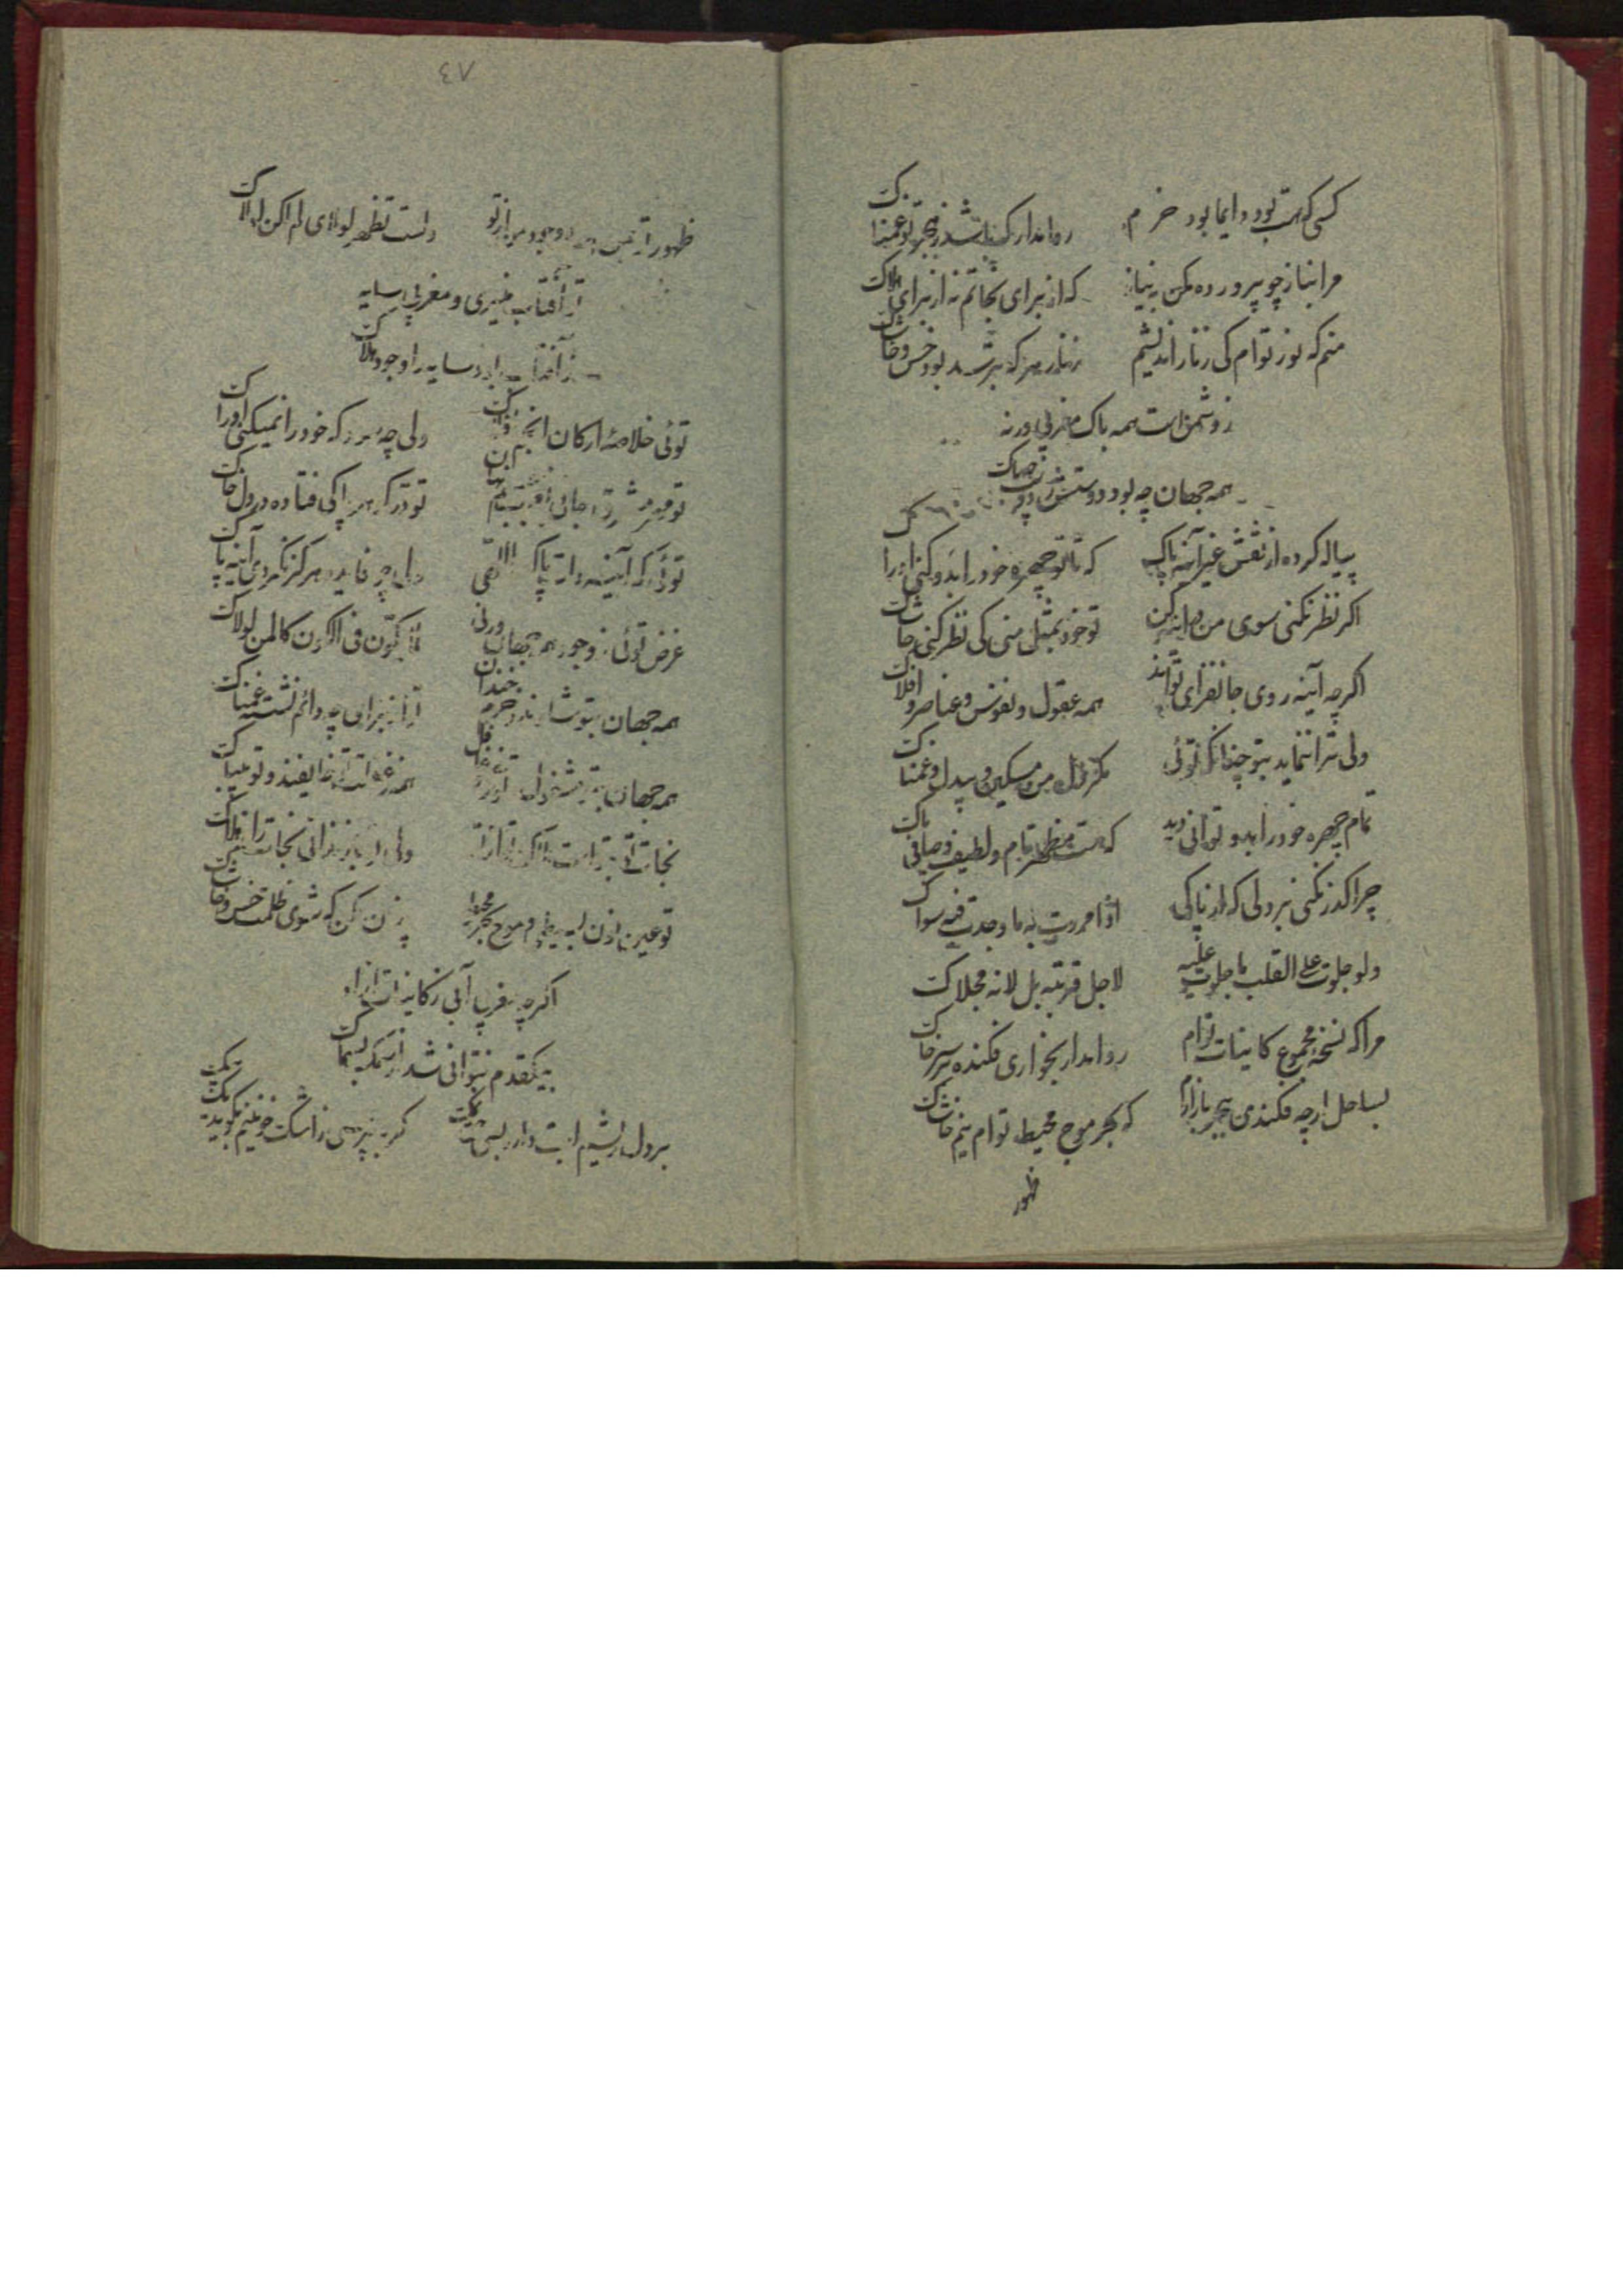 کسی که هست بتو دایما بود خرم روا مدار که باشد ز هجر تو غمناک
مرا بناز چو پرورده مکن بنیاز که از برای نجاتم نه از برای هلاک
منم که نور توام کی ز نار اندیشم ز نار هر که بترسد بود خس و خاشاک
ز دشمن است همه باک مغربی ورنه
همه جهان چه بود دوستش ز دوست چه باک
پیاله کرده از نقش غیر آینه پاک که تا تو چهره خود را بدو کنی ادراک
اگر نظر نکنی سوی من در آینه کن تو خود بمثل منی کی نظر کنی حاشاک
اگرچه آینه روی جانفزای تواند همه عقول و نفوس و عناصر و افلاک
ولی ترا ننماید بتو چنانکه توئی مگر دل من مسکین و بیدل و غمناک
تمام چهره خود را بدو توانی دید که هست مظهر تام و لطیف و صافی و پاک
چرا گذر نکنی بر دلی که از پاکی اذا مررت به ما وجدت فیه سواک
ولو جلوت علی القلب ما جلوت علیه لاجل قربته بل لانه مجلاک
مرا که نسخه مجموع کائنات توام روا مدار بخواری فکنده بر سر خاک
بساحل ارچه فکندی بهجر بازارا که بحر موج محیط توام نیم خاشاک
ظهور
٤٧
ظهور تو بمن است و وجود من از تو ولست تظهر لولای لم اکن لولاک
تو آفتاب منیری و مغربی سایه
ز آفتاب بود سایه را وجود هلاک
توئی خلاصه ارکان انجم و افلاک ولی چه سود که خود را نمیکنی ادراک
تو مهر مشرق جانی بغرب جسم نهان تو در گوهر پاکی فتاده در دل خاک
توئی که آینه ذات پاک اللهی ولی چه فایده هرگز نکردی آینه پاک
غرض توئی ز وجود همه جهان ورنه لما یکون فی الکون کائن لولاک
همه جهان بتو شادند و خرم و خندان تو از برای چه دائم نشسته غمناک
همه جهان بتو مشغول و تو ز خود غافل همه ز غفلت تو خایفند و تو بیباک
نجات تو بتو است و هلاک تو از تو ولی تو باز ندانی نجات را ز هلاک
تو عین نور بسیطی و موج بحر محیط چنان مکن که شوی ظلمت خس و خاشاک
اگرچه مغربی آبی ز کائنات آزاد
بیکقدم بتوانی شد از سمک بسماک
بر دل ریشم لبت دارد بسی حق نمک گر نپرسی راست خونم نگوید یک بیک